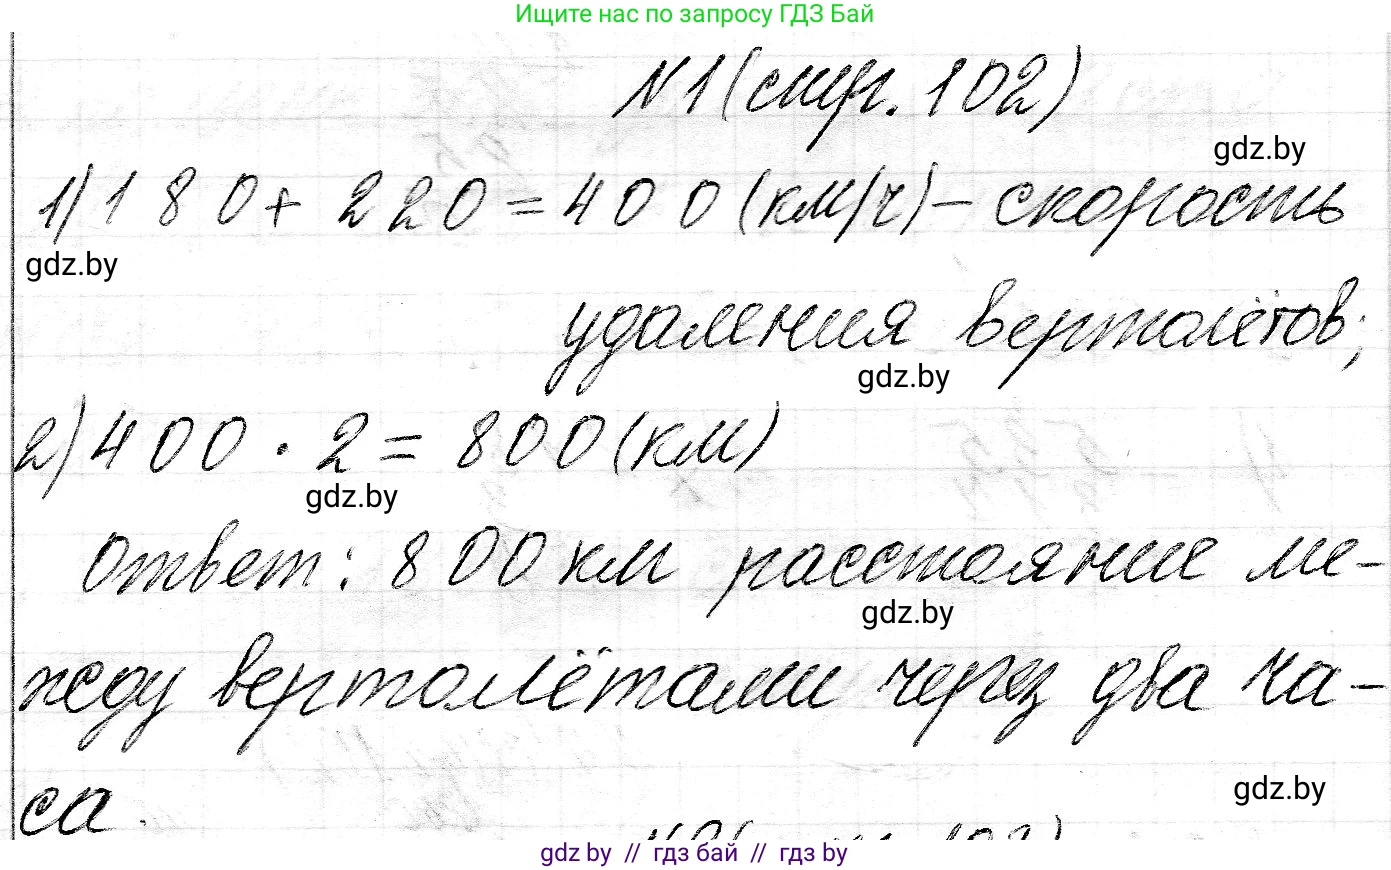 Ищите нас по запросу ГДЗ Бай
N1 (стр. 102)
gdz.by
1) 180 + 220 = 400 (км/ч) – скорость
gdz.by
удаления вертолётов;
gdz.by
2) 400 · 2 = 800 (км)
gdz.by
Ответ: 800 км расстояние ме-
gdz.by
жду вертолётами через два ча-
са.
gdz.by
gdz by // гдз бай // гдз by